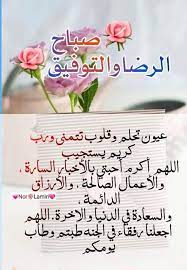 صباح
الرضا والتوفيق
عيون تحلم وقلوب تتمنى ورب
كريم يستجيب
اللهم أكرم أحبتي بالأخبار السارة ،
والأعمال الصالحة ، والأرزاق
الدائمة ،
والسعادة في الدنيا والآخرة ، اللهم
اجعلنا رفقاء في الجنة طبتم وطاب
يومكم
Nor Lamin